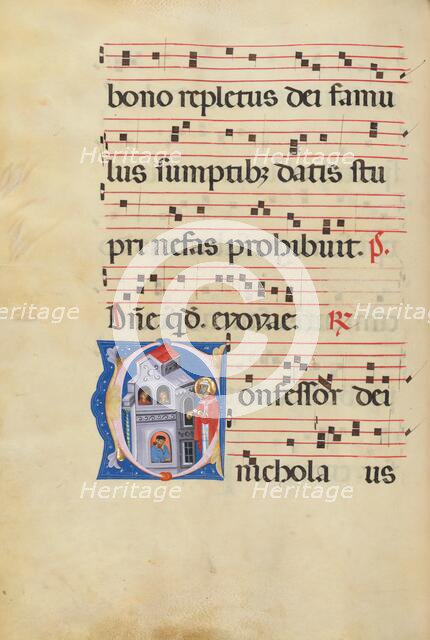 bono repletus dei famu
lus sumptibꝫ datis stu
pri nefas prohibuit. ps.
Dn̄e qd̄. evovae. R
Confessor dei
nichola us
Heritage Heritage
Heritage Heritage
Heritage Heritage